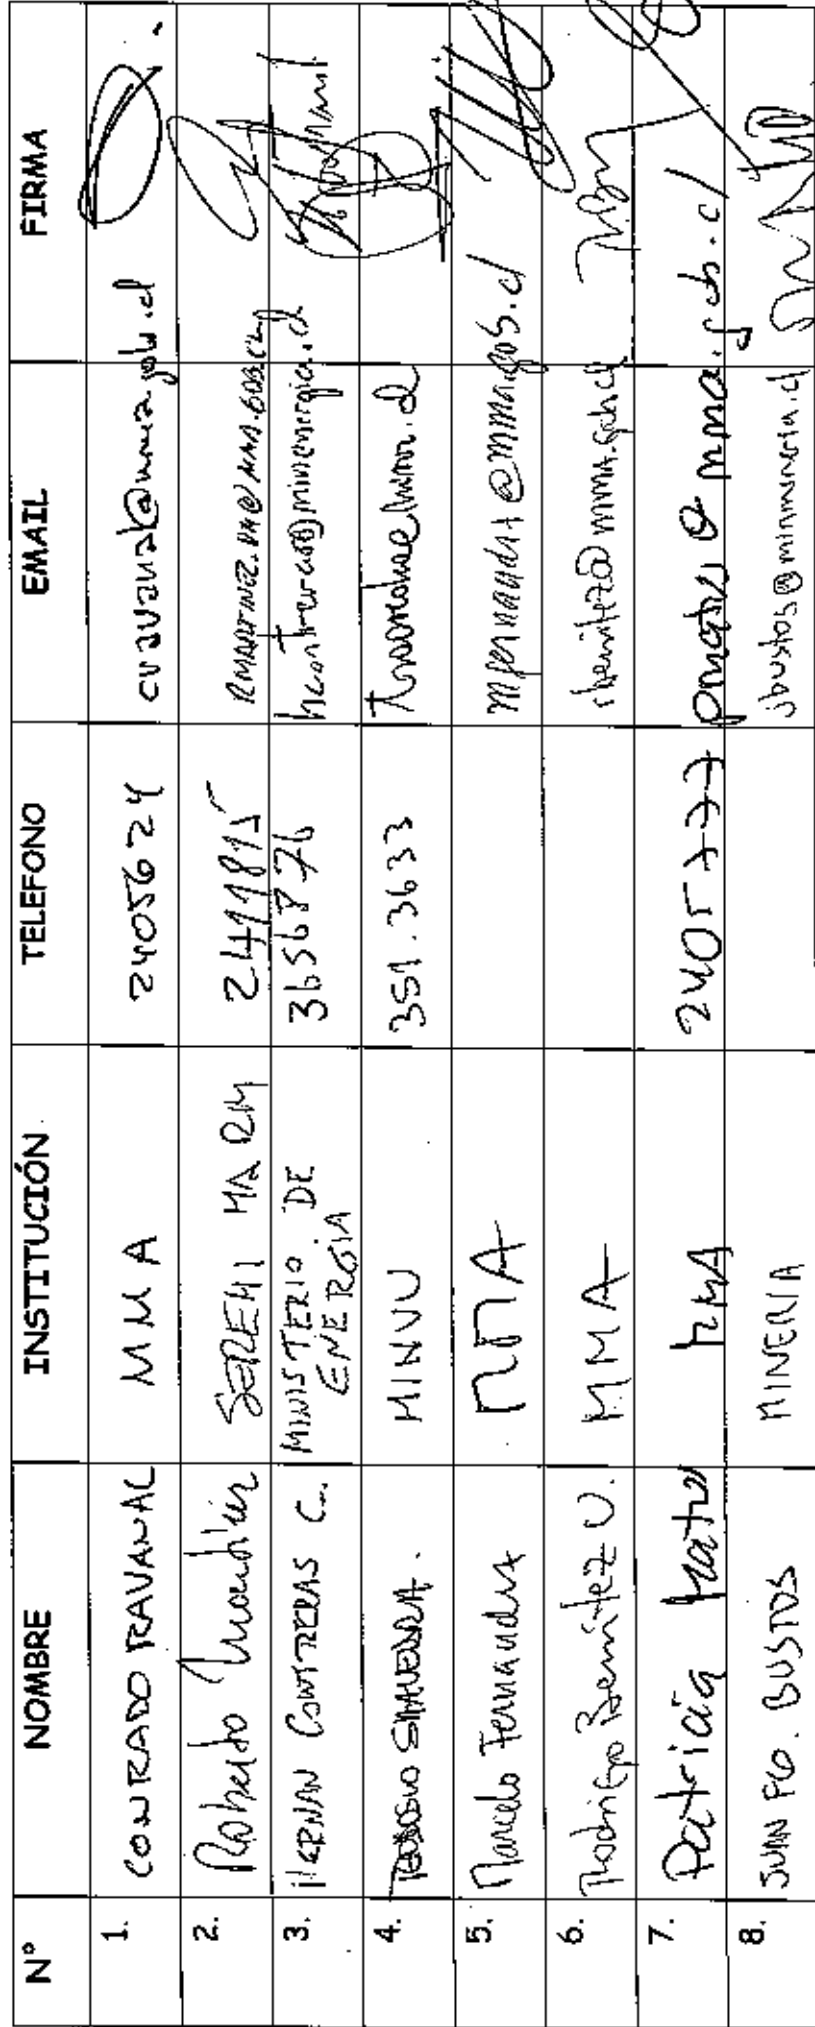 N° NOMBRE INSTITUCIÓN TELEFONO EMAIL FIRMA
1. CONRADO RAVANAL MMA 2405624 cravanal@mma.gob.cl
2. Roberto SEREMI MA RM 2411815
3. HERNAN CONTRERAS C. MINISTERIO DE ENERGÍA 3656876 hcontreras@minenergia.cl
4. MINVU 351.3633
5. Marcelo Fernandez MMA mfernandez@mma.gob.cl
6. Rodrigo Benitez U. MMA rbenitez@mma.gob.cl
7. Patricia Matus MMA 2405777 pmatus@mma.gob.cl
8. JUAN FCO. BUSTOS MINERIA jbustos@minmineria.cl